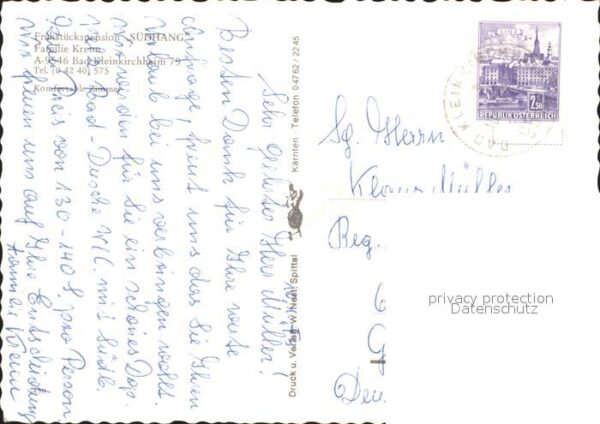 Frühstückspension "SÜDHANG"
Familie Krenn
A-9546 Bad Kleinkirchheim 79
Tel. (0 42 40) 575
Komfortable Zimmer
Sehr geehrter Herr Müller!
Besten Dank für Ihre werte
Anfrage, freut uns das Sie Ihren
Urlaub bei uns verbringen wollt.
Wir werden für Sie ein schönes Dop.
Bad-Dusche W.C. mit Südb.
Preis von 130-140 S. pro Person
Wir freuen uns auf Ihre Entscheidung
Familie Krenn
Druck u. Verlag W. Neff, Spittal Kärnten Telefon 0 47 62 / 22 45
2.50
REPUBLIK ÖSTERREICH
BAD KLEIN
Sg. Herrn
Klaus Müller
Reg.
6
privacy protection
Datenschutz